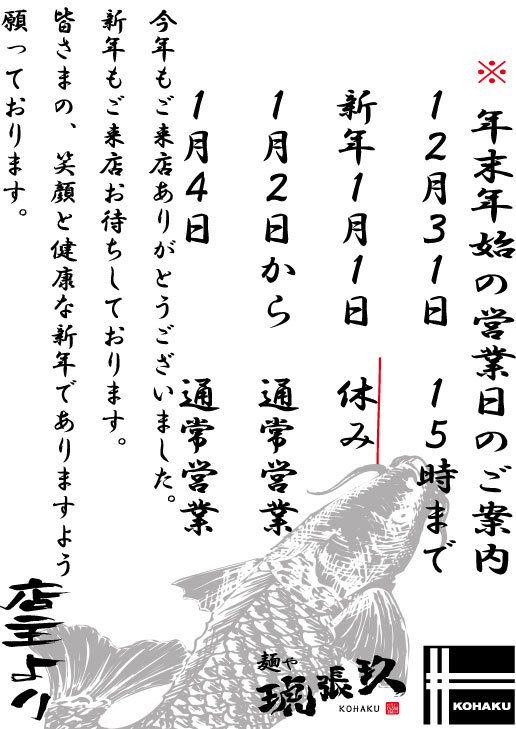 ※ 年末年始の営業日のご案内
12月31日 15時まで
新年1月1日 休み
1月2日から 通常営業
1月4日 通常営業
今年もご来店ありがとうございました。
新年もご来店お待ちしております。
皆さまの、笑顔と健康な新年でありますよう
願っております。
店主より
麺や
琥張玖
KOHAKU
KOHAKU